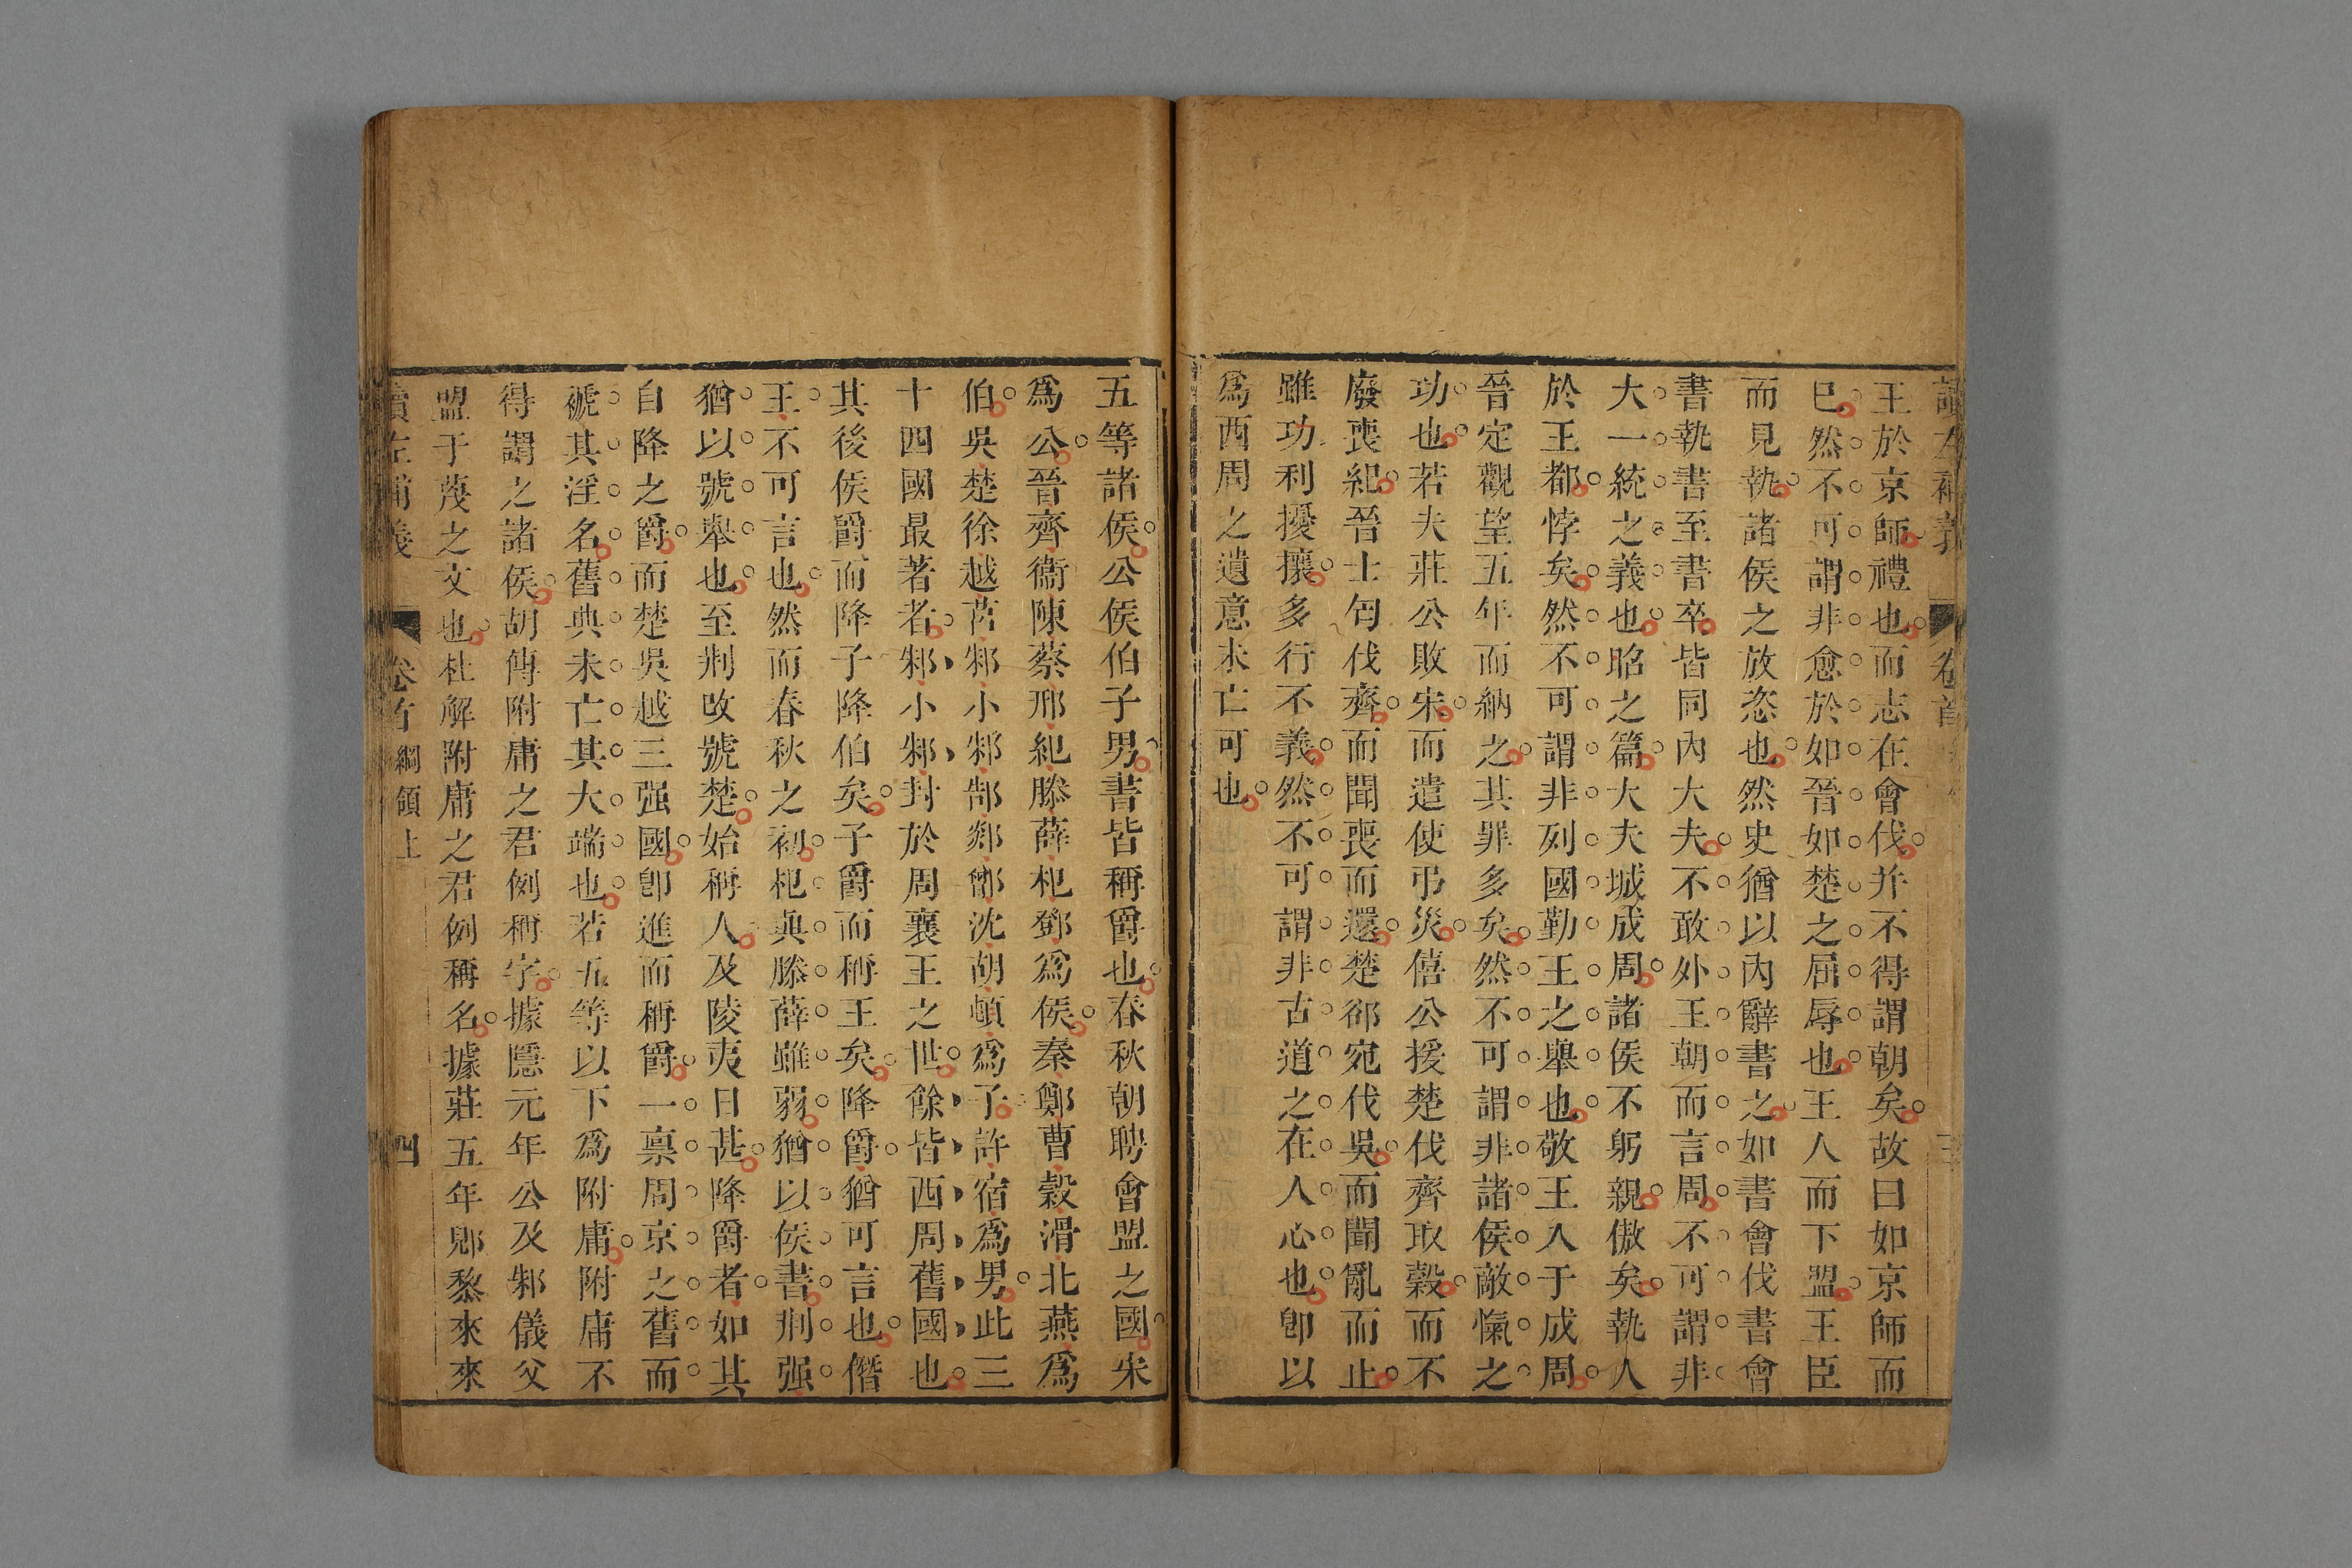 讀左補義 卷首 三
王於京師禮也而志在會伐并不得謂朝矣故曰如京師而
已然不可謂非愈於如晉如楚之屈辱也王人而下盟王臣
而見執諸侯之放恣也然史猶以內辭書之如書會伐書會
書執書至書卒皆同內大夫不敢外王朝而言周不可謂非
大一統之義也昭之篇大夫城成周諸侯不躬親傲矣執人
於王都悖矣然不可謂非列國勤王之舉也敬王入于成周
晉定觀望五年而納之其罪多矣然不可謂非諸侯敵愾之
功也若夫莊公敗宋而遣使弔災僖公援楚伐齊取穀而不
廢喪紀晉士匄伐齊而聞喪而還楚郤宛伐吳而聞亂而止
雖功利擾攘多行不義然不可謂非古道之在人心也卽以
爲西周之遺意未亡可也
五等諸侯公侯伯子男書皆稱爵也春秋朝聘會盟之國宋
爲公晉齊衞陳蔡邢紀滕薛杞鄧爲侯秦鄭曹穀滑北燕爲
伯吳楚徐越莒邾小邾郜郯鄫沈胡頓爲子許宿爲男此三
十四國最著者邾小邾封於周襄王之世餘皆西周舊國也
其後侯爵而降子降伯矣子爵而稱王矣降爵猶可言也僭
王不可言也然而春秋之初杞與滕薛雖弱猶以侯書荆强
猶以號舉也至荆改號楚始稱人及陵夷日甚降爵者如其
自降之爵而楚吳越三强國卽進而稱爵一稟周京之舊而
褫其淫名舊典未亡其大端也若五等以下爲附庸附庸不
得謂之諸侯胡傳附庸之君例稱字據隱元年公及邾儀父
盟于蔑之文也杜解附庸之君例稱名據莊五年郳黎來來
讀左補義 卷首 綱領上 四